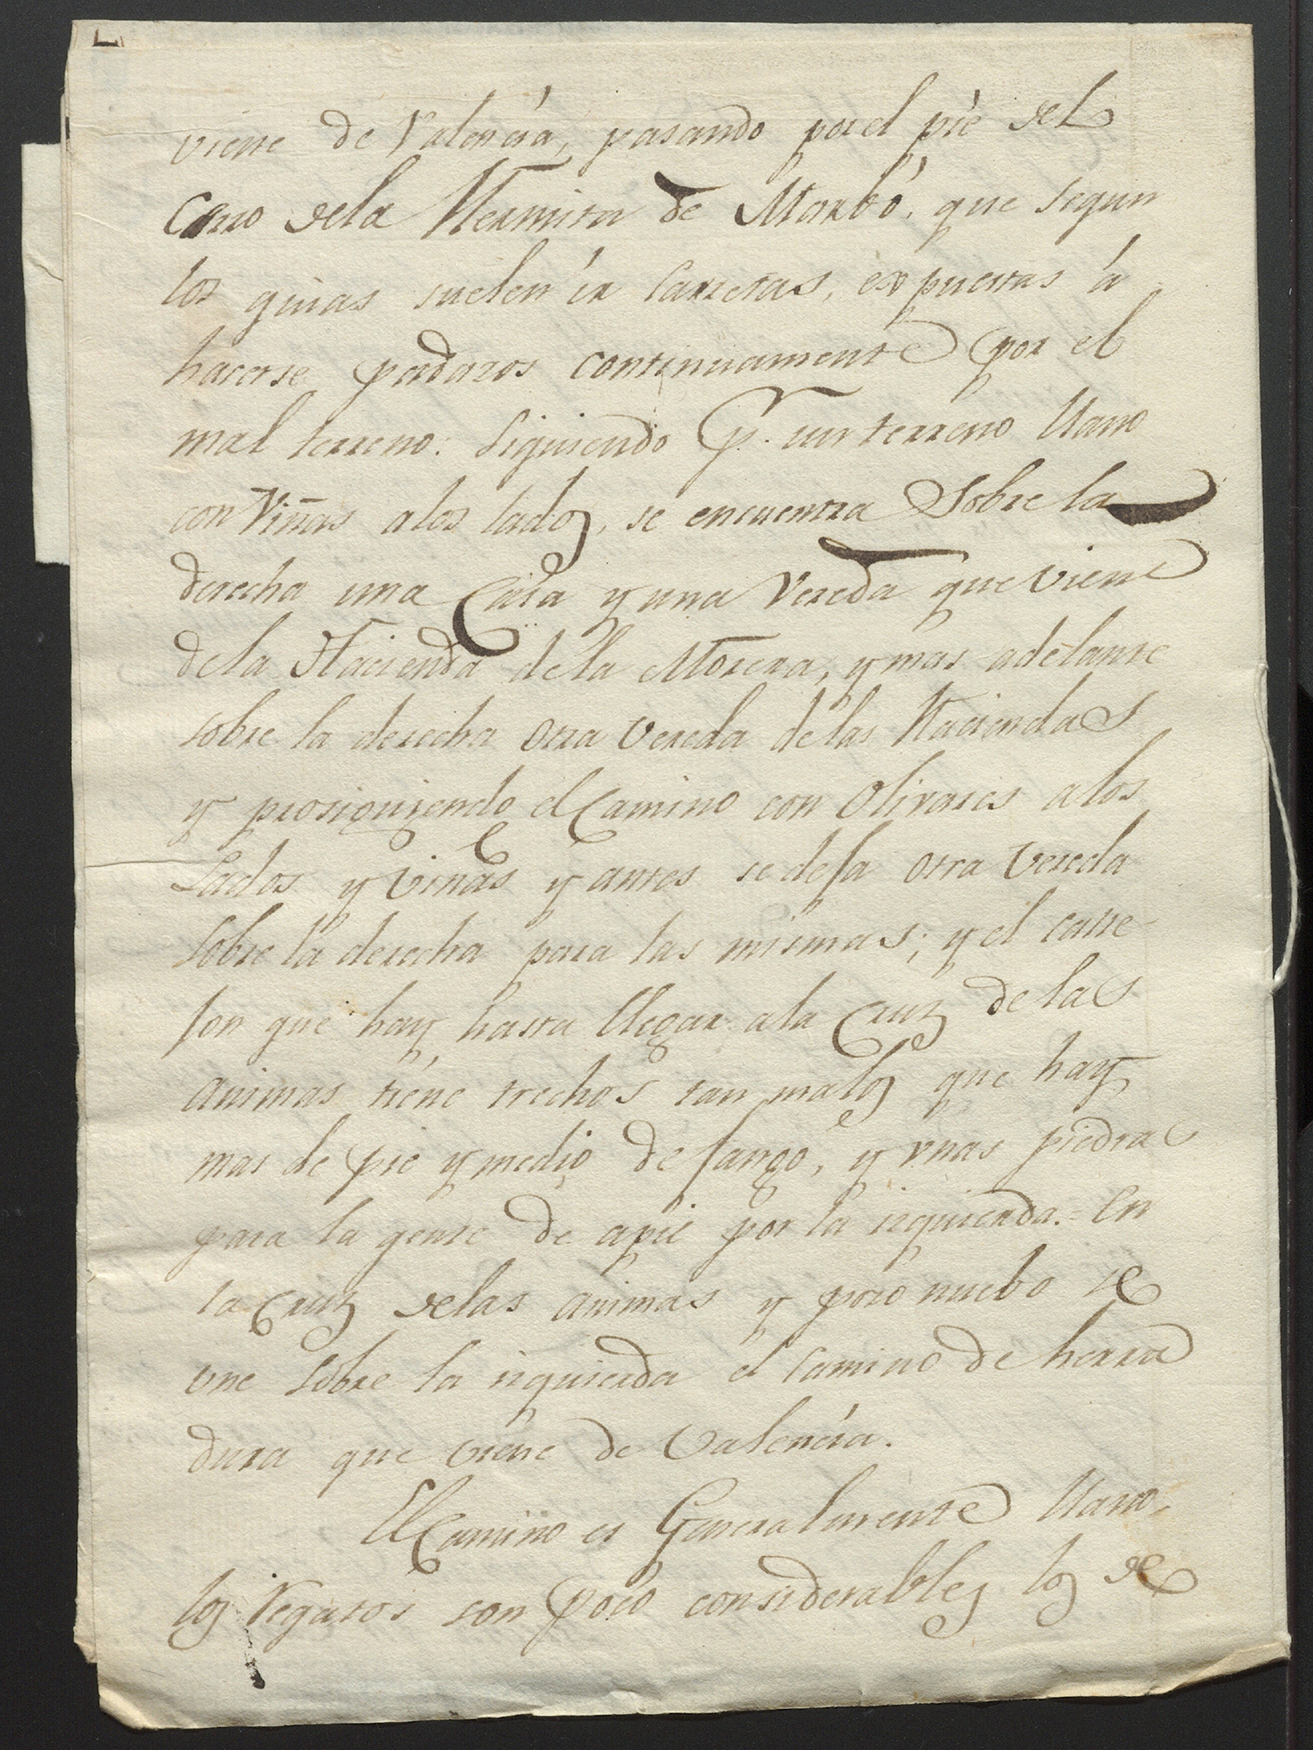 viene de Valencia, pasando por el piè del
Cerro dela Hermita de Marbó, que segun
los guias suelen ír Carretas, expuestas á
hacerse pedazos continuamente por el
mal terreno: Siguiendo p.r un terreno llano
con Viñas alos lados, se encuentra Sobre la
derecha una Casa y una Vereda que viene
dela Hacienda dela Morera, y mas adelante
sobre la derecha otra vereda delas Haciendas
y prosiguiendo el Camino con Olivares alos
Lados y viñas y antes se defa otra vereda
sobre la derecha para las mismas; y el calle
jon que hay hasta llegar ala Cruz de las
animas tiene trechos tan malos que hay
mas de pie y medio de fango, y vnas piedras
para la gente de apie por la izquierda. En
la Cruz delas animas y pozo nuebo se
une sobre la izquierda el Camino de herra
dura que viene de Valencia.
El Camino es Generalmente llano,
los Regasos son poco considerables los de